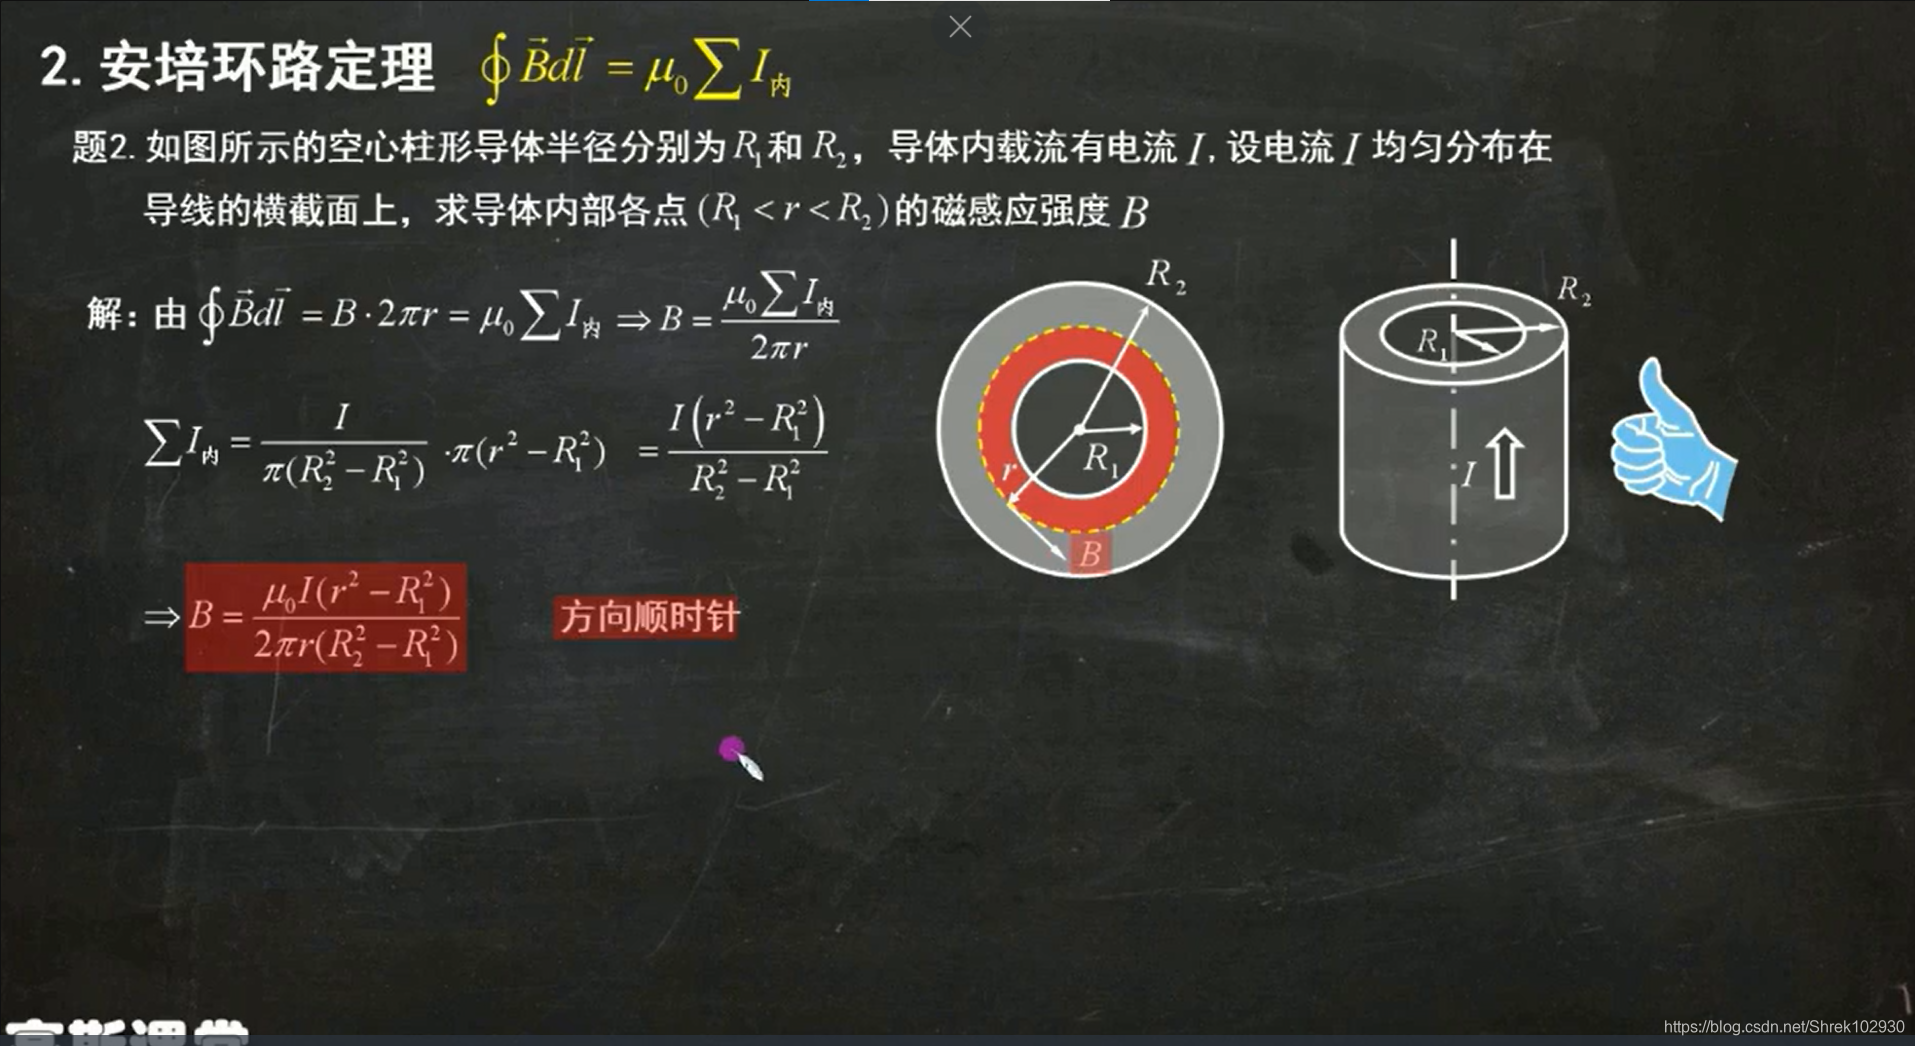 2. 安培环路定理 ∮B⃗dl⃗ = μ₀∑I内
题2. 如图所示的空心柱形导体半径分别为 R₁ 和 R₂，导体内载流有电流 I, 设电流 I 均匀分布在
导线的横截面上，求导体内部各点 (R₁ < r < R₂) 的磁感应强度 B
解：由 ∮B⃗dl⃗ = B·2πr = μ₀∑I内 ⇒ B = μ₀∑I内 / 2πr
∑I内 = I / π(R₂² − R₁²) ·π(r² − R₁²) = I(r² − R₁²) / R₂² − R₁²
⇒ B = μ₀I(r² − R₁²) / 2πr(R₂² − R₁²) 方向顺时针
R₂
R₁
r
B
R₂
R₁
I
高斯课堂
https://blog.csdn.net/Shrek102930